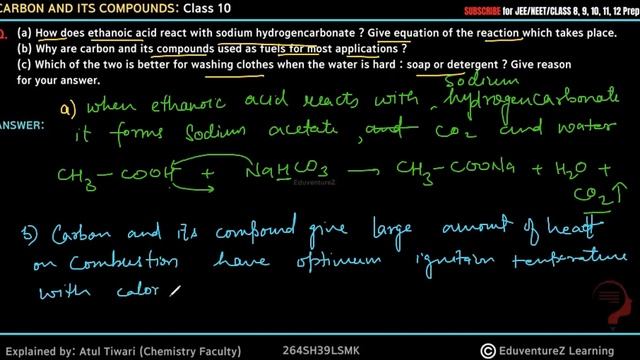 CARBON AND ITS COMPOUNDS: Class 10
SUBSCRIBE for JEE/NEET/CLASS 8, 9, 10, 11, 12 Prep
Q. (a) How does ethanoic acid react with sodium hydrogencarbonate ? Give equation of the reaction which takes place.
(b) Why are carbon and its compounds used as fuels for most applications ?
(c) Which of the two is better for washing clothes when the water is hard : soap or detergent ? Give reason
for your answer.
ANSWER:
a) when ethanoic acid reacts with sodium hydrogencarbonate
it forms sodium acetate, and CO2 and water
CH3 — COOH + NaHCO3 → CH3 — COONa + H2O +
CO2↑
EduventureZ
b) Carbon and its compound give large amount of heat
on combustion have optimum ignitain temperature
with calor
Explained by: Atul Tiwari (Chemistry Faculty)
264SH39LSMK
EduventureZ Learning